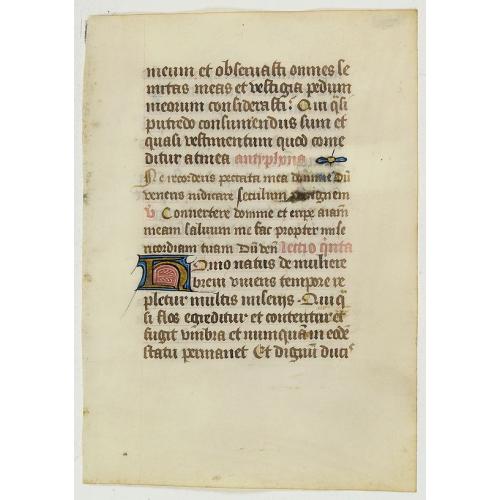 meum et obseruasti omnes se
mitas meas et vestigia pedum
meorum considerasti: Qui qsi
putredo consumendus sum et
quasi vestimentum quod come
ditur a tinea antyphona
Ne recorderis peccata mea domine Dū
veneris iudicare seculum per ignem
V Conuertere domine et eripe aiam
meam saluum me fac propter mise
ricordiam tuam Dū ven̄ lectio qnta
Homo natus de muliere
breui viuens tempore re
pletur multis miserijs Qui q̄
si flos egreditur et conteritur et
fugit vmbra et nunquam in eodē
statu permanet Et dignū duci